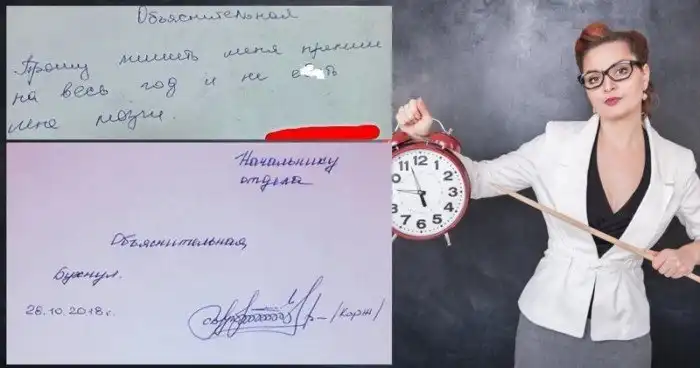 Объяснительная
Прошу лишить меня премии
на весь год и не е ть
мне мозги.
Начальнику
отдела
Объяснительная,
Бухнул.
28.10.2018г.
/Корж/
12
1
2
3
4
5
6
7
8
9
10
11